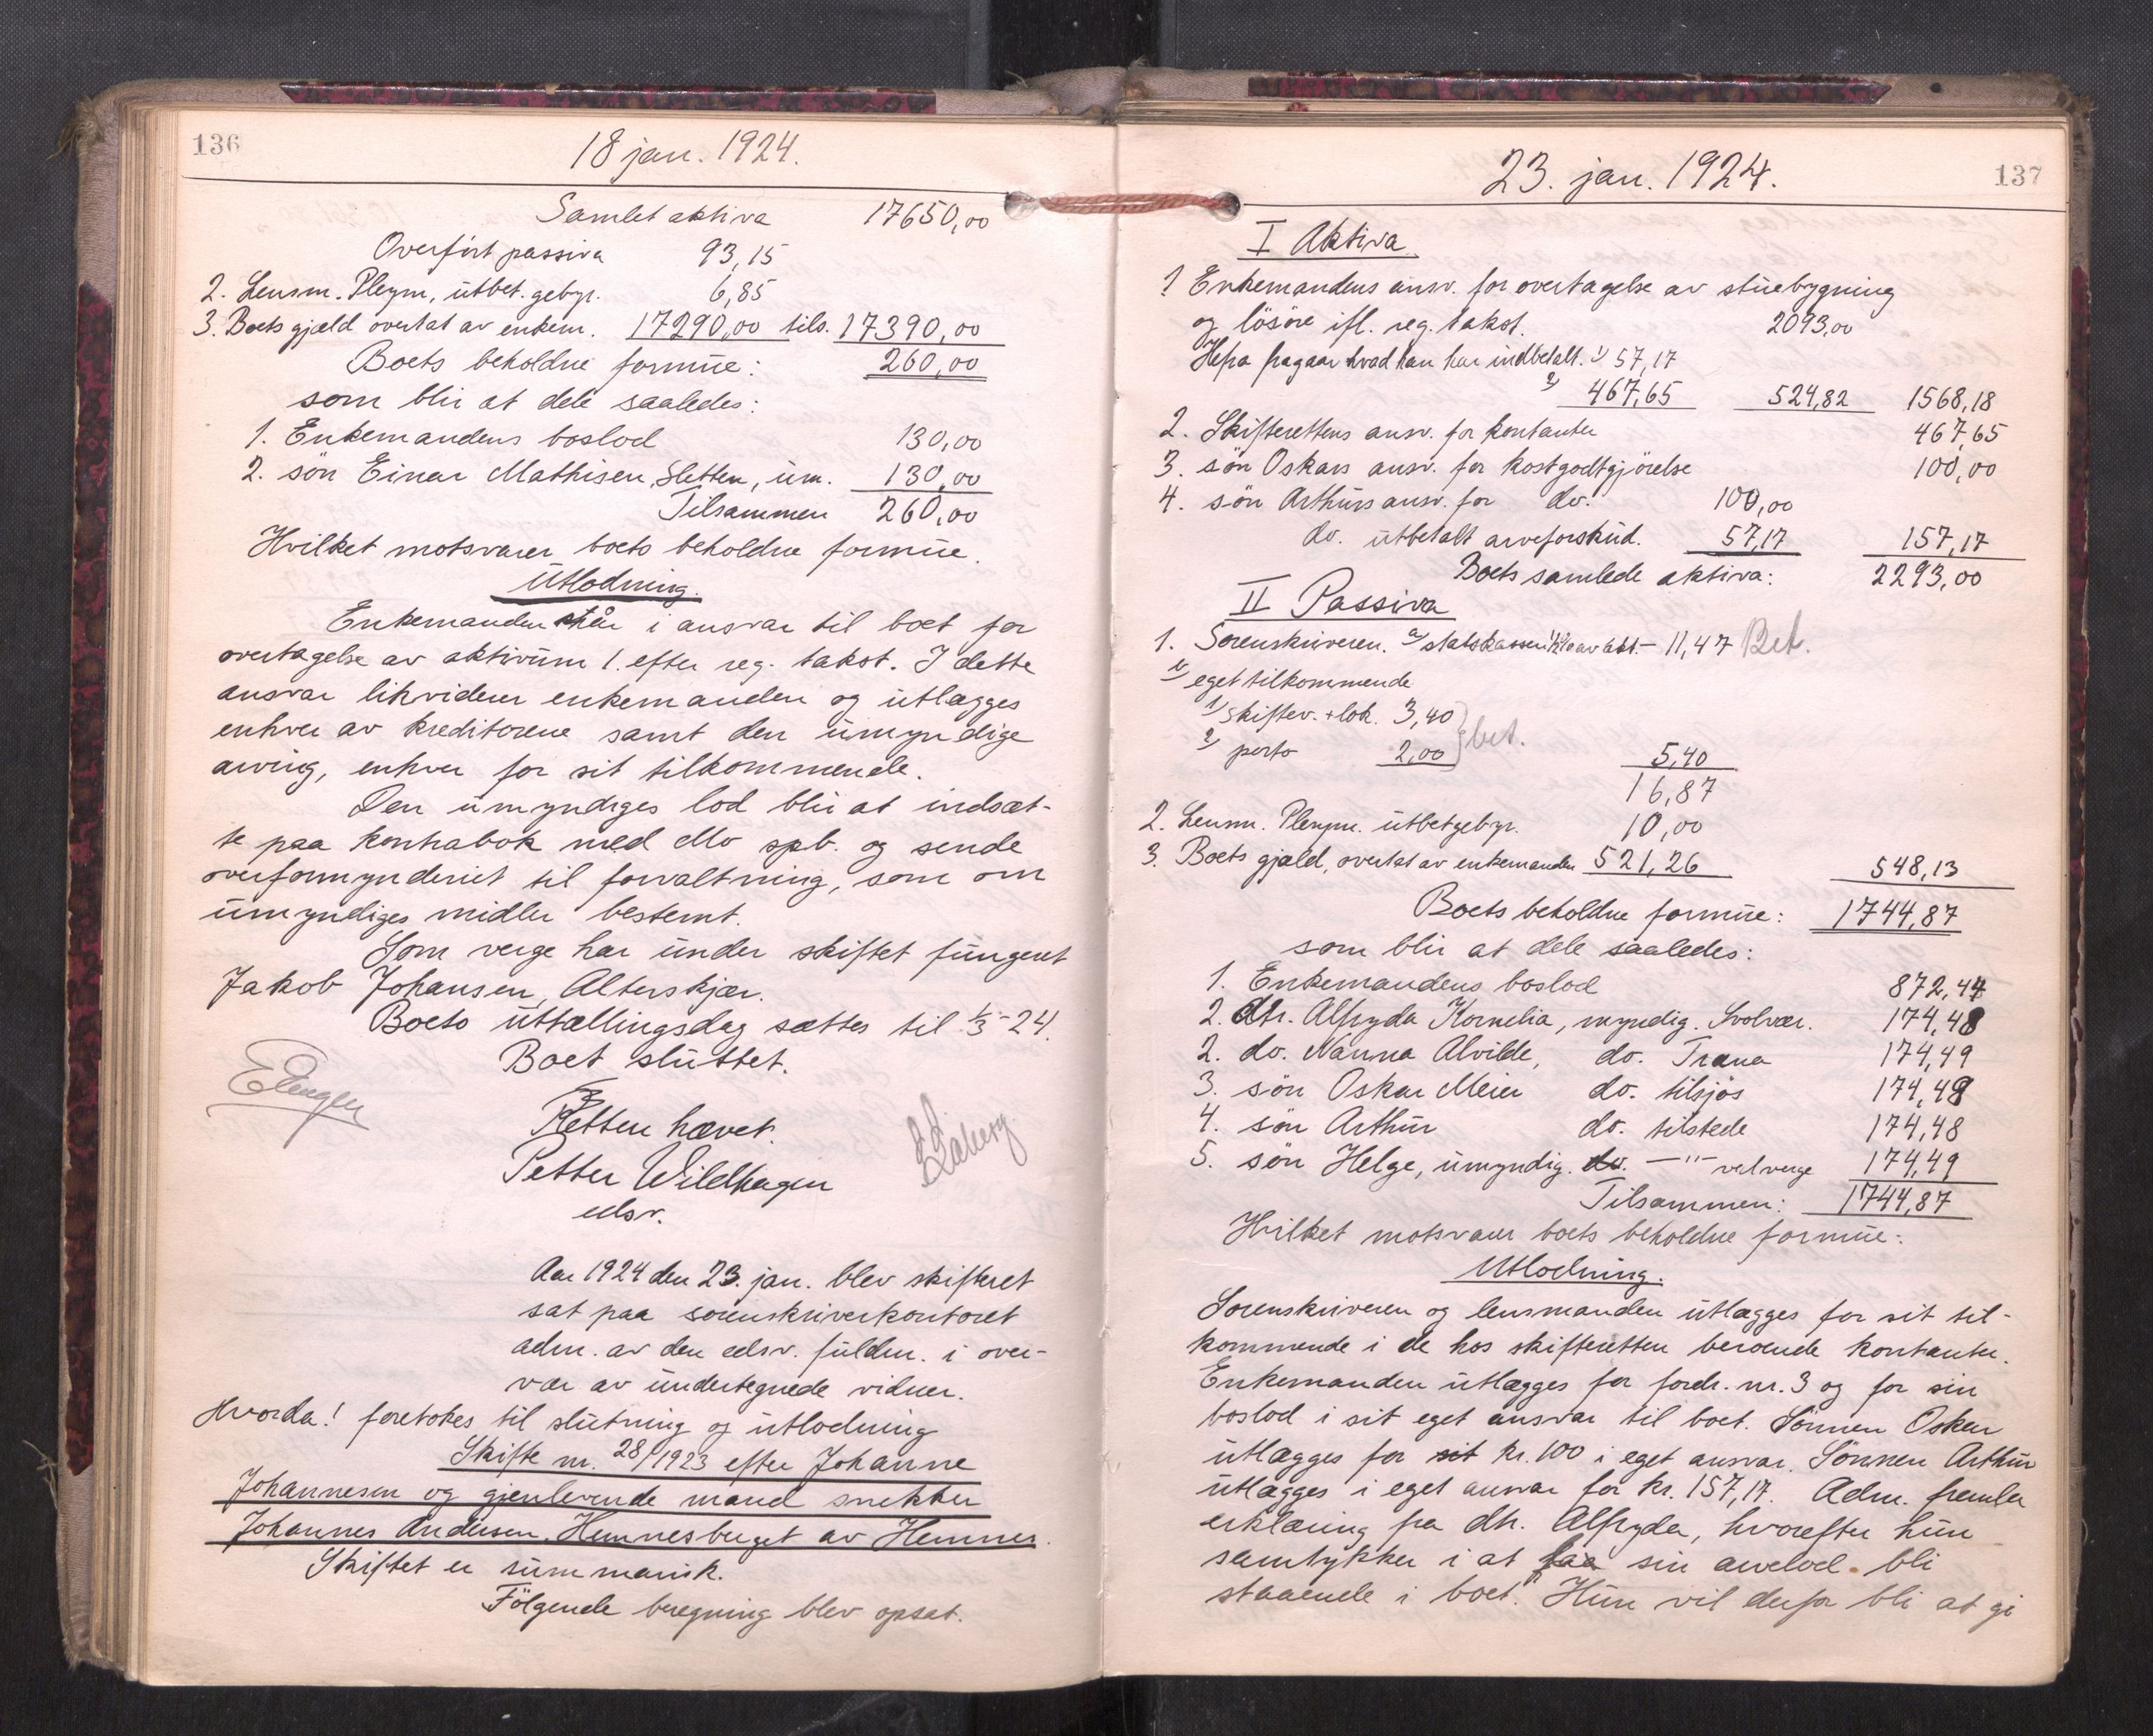 136
18 jan. 1924.
Samlet aktiva 17650,00
Overfört passiva 93,15
2. Lensm. Pleym, utbet. gebyr. 6,85
3. Boets gjæld overtat av enkem. 17290,00 tils. 17390,00
Boets beholdne formue: 260,00
som blir at dele saaledes:
1. Enkemandens boslod 130,00
2. sön Einar Mathisen, Sletten, um. 130,00
Tilsammen 260,00
Hvilket motsvarer boets beholdne formue.
Utlodning.
Enkemanden står i ansvar til boet for
overtagelse av aktivum 1. efter reg. takst. I dette
ansvar likviderer enkemanden og utlægges
enhver av kreditorene samt den umyndige
arving, enhver for sit tilkommende.
Den umyndiges lod blir at indsæt-
te paa kontrabok med Mo spb. og sende
overformynderiet til forvaltning, som om
umyndiges midler bestemt.
Som verge har under skiftet fungeret
Jakob Johansen, Alterskjær.
Boets uttællingsdag sættes til 1/3-24.
Boet sluttet.
Retten hævet.
Petter Wildhagen
edsv.
Aar 1924 den 23. jan. blev skifteret
sat paa sorenskriverkontoret
adm. av den edsv. fuldm. i over-
vær av undertegnede vidner.
Hvorda! foretokes til slutning og utlodning
Skifte nr. 28/1923 efter Johanne
Johannesen og gjenlevende mand snekker
Johannes Andersen, Hemnesberget av Hemnes.
Skiftet er summarisk.
Følgende beregning blev opsat.
23. jan. 1924.
137
I Aktiva
1 Enkemandens ansv. for overtagelse av stuebygning
og lösöre ifl. reg. takst. 2093,00
Herfra fragaar hvad han har indbetalt. 1) 57,17
2) 467,65 524,82 1568,18
2. Skifterettens ansv. for kontanter 467,65
3. sön Oskars ansv. for kostgodtgjörelse 100,00
4. sön Arthurs ansv. for do. 100,00
do. utbetalt arveforskud. 57,17 157,17
Boets samlede aktiva: 2293,00
II Passiva
1. Sorenskriveren. a/ statskassen ½% av akt. - 11,47 Bet.
b/ eget tilkommende
1/ skiftev. + lok. 3,40
2/ porto 2,00 } bet. 5,40
16,87
2. Lensm. Pleym. utbet gebyr. 10,00
3. Boets gjæld, overtat av enkemanden 521,26 548,13
Boets beholdne formue: 1744,87
som blir at dele saaledes:
1. Enkemandens boslod 872,44
2. dtr. Alfryda Kornelia, myndig. Svolvær. 174,48
2. do. Nanna Alvilde, do. Træna 174,49
3. sön Oskar Meier do. tilsjös 174,49
4. sön Arthur do. tilstede 174,48
5. sön Helge, umyndig. do. —"— ved verge 174,49
Tilsammen: 1744,87
Hvilket motsvarer boets beholdne formue:
Utlodning.
Sorenskriveren og lensmanden utlægges for sit til-
kommende i de hos skifteretten beroende kontanter.
Enkemanden utlægges for fordr. nr. 3 og for sin
boslod i sit eget ansvar til boet. Sönnen Oskar
utlægges for sit kr. 100 i eget ansvar. Sönnen Arthur
utlægges i eget ansvar for kr. 157,17. Adm. fremla
erklæring fra dtr. Alfryda, hvorefter hun
samtykker i at faa sin arvelod bli
staaende i boet." Hun vil derfor bli at gi